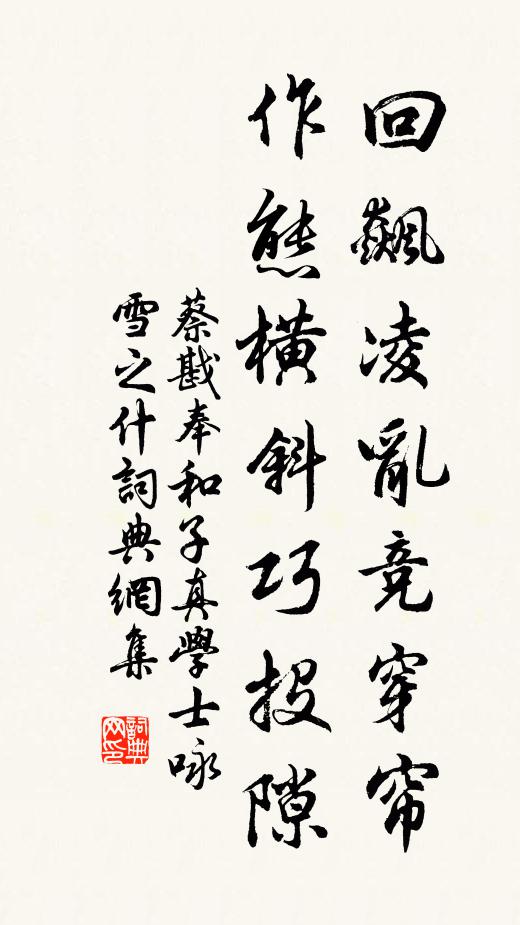 回飆凌亂竞穿帘
作態横斜巧投隙
蔡戡奉和子真學士咏
雪之什詞典網集
詞典
网印